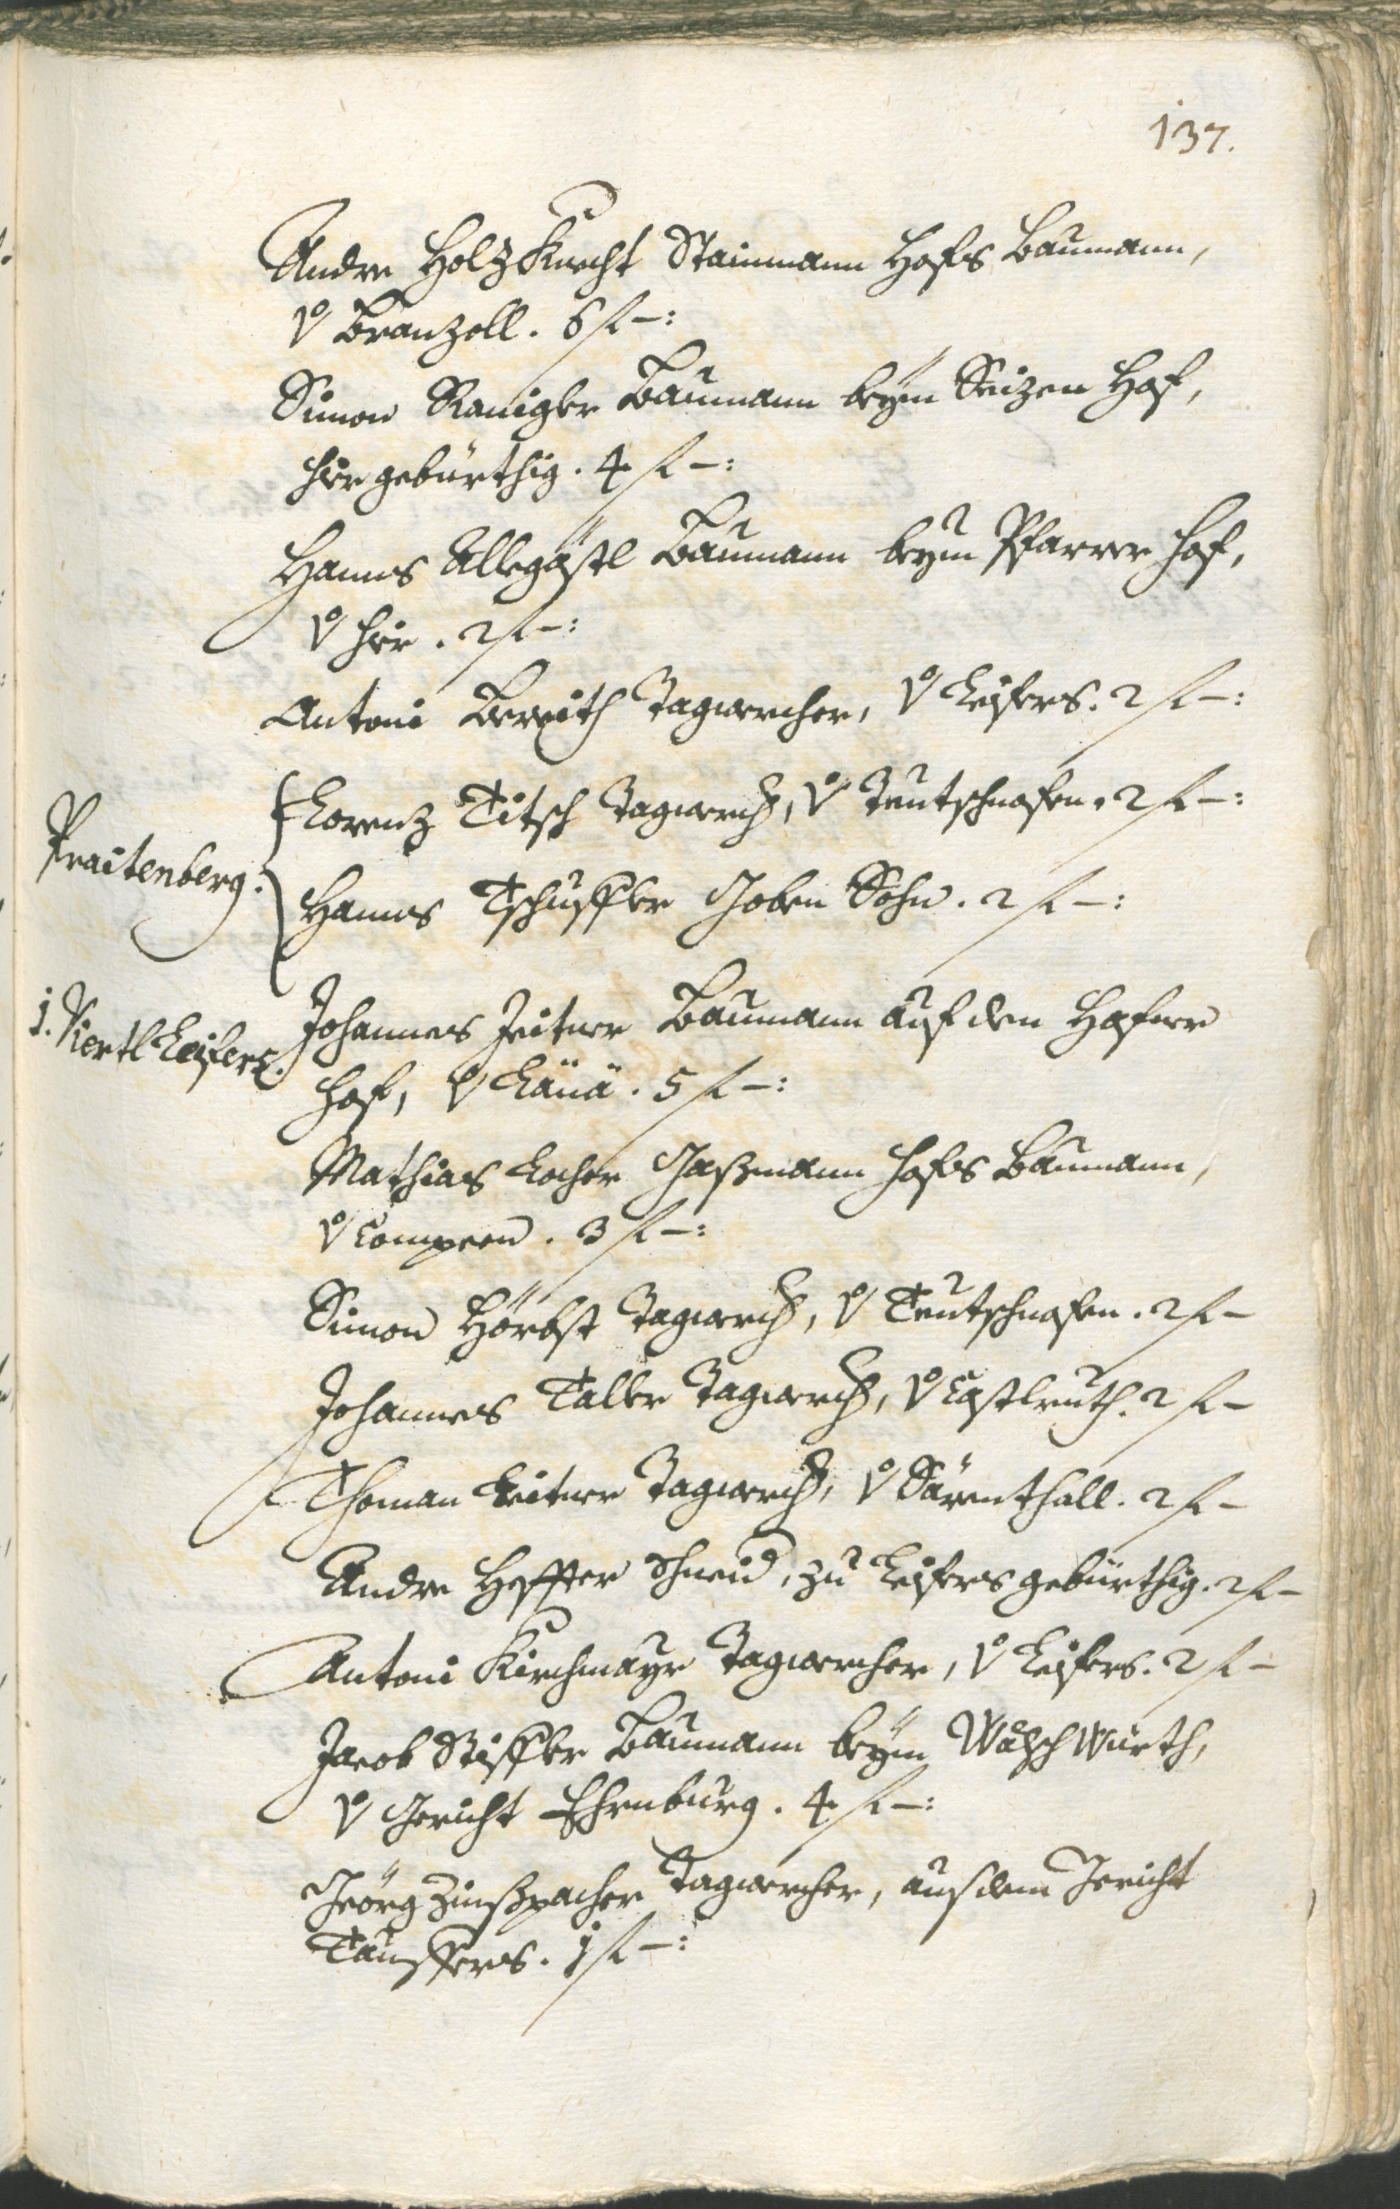 137.
Andre Holzknecht Stainmann Hofs Baumann,
v Branzoll. 6 fl –:
Simon Raniger Baumann beÿm Seizen Hof,
hier gebürthig. 4 fl –:
Hannes Allegöstl Baumann beÿm Pfarrer hof,
v hier. 2 fl –:
Antoni Bereith Tagwercher, v Leifers. 2 fl –:
Praitenberg:
Lorenz Titsch Tagwerch, v Teutschnofen. 2 fl –:
Hannes Tschuffler Joben Sohn. 2 fl –:
1. Viertl Leifers.
Johannes Zeitner Baumann auf den Hofner
hof, v Läuä. 5 fl –:
Mathias Locher Gassmann hofs Baumann,
v Compenn. 3 fl –:
Simon Hörbst Tagwerch, v Teutschnofen. 2 fl –
Johannes Taller Tagwerch, v Castlruth. 2 fl –
Thoman Leitner Tagwerch, v Särenthall. 2 fl –
Andre Hoffter Schneid, zu Leifers gebürthig. 2 fl –
Antoni Kirchmaÿr Tagwercher, v Leifers. 2 fl –
Jacob Stiffler Baumann beÿm Wälsch Würth,
v Gericht Ehrnburg. 4 fl –:
Geörg Zinsspacher Tagwercher, aus dem Gericht
Tauffers. 1 fl –: